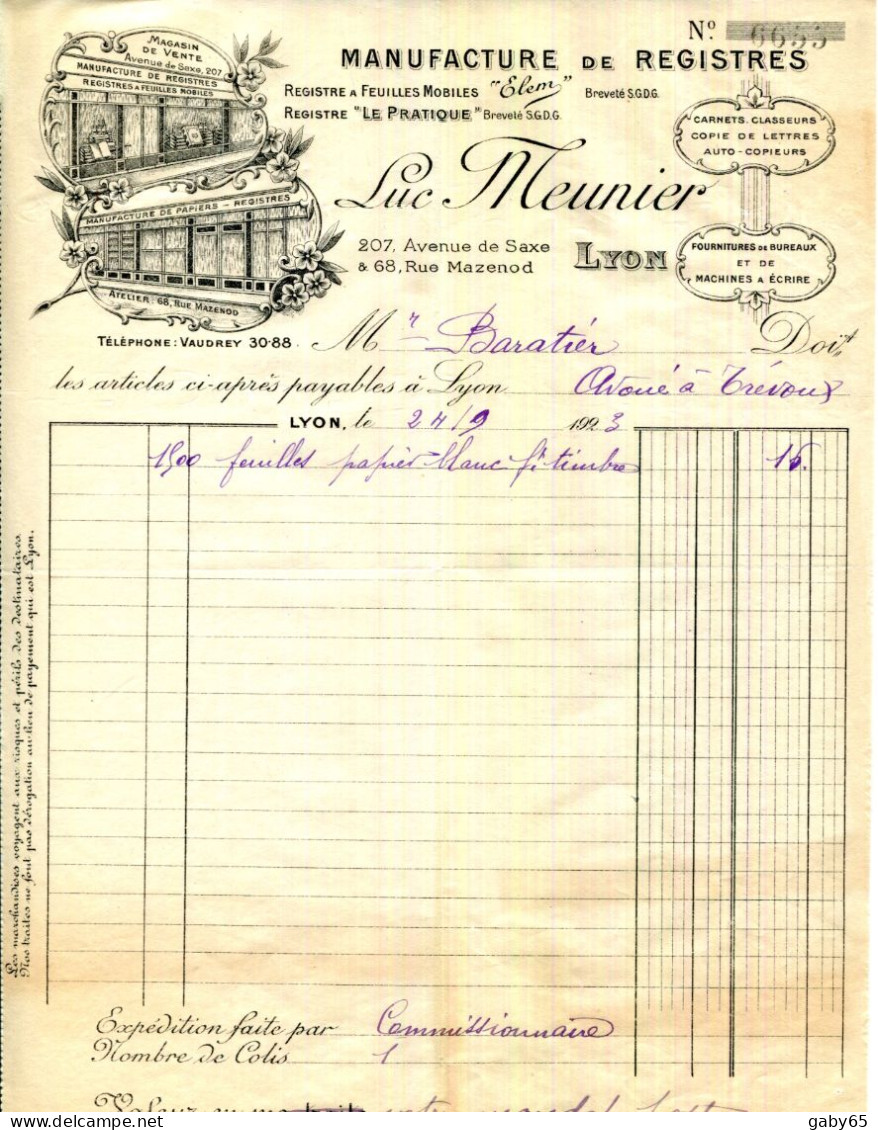 Nº 6653
MAGASIN
DE VENTE
Avenue de Saxe, 207
MANUFACTURE DE REGISTRES
REGISTRES A FEUILLES MOBILES
MANUFACTURE DE PAPIERS - REGISTRES
ATELIER: 68, RUE MAZENOD
MANUFACTURE DE REGISTRES
REGISTRE A FEUILLES MOBILES "Elem" Breveté S.G.D.G.
REGISTRE "LE PRATIQUE" Breveté S.G.D.G.
CARNETS. CLASSEURS
COPIE DE LETTRES
AUTO-COPIEURS
Luc Meunier
207, Avenue de Saxe
& 68, Rue Mazenod
LYON
FOURNITURES DE BUREAUX
ET DE
MACHINES A ÉCRIRE
TÉLÉPHONE: VAUDREY 30-88
Mr Baratier Doit
les articles ci-après payables à Lyon Avoué à Trévoux
LYON, le 24/9 1923
1500 feuilles papier blanc ft timbre 16.
Les marchandises voyagent aux risques et périls des destinataires.
Nos traites ne font pas dérogation au lieu de payement qui est Lyon.
Expédition faite par Commissionnaire
Nombre de Colis 1
Valeur en votre mandat
gaby65